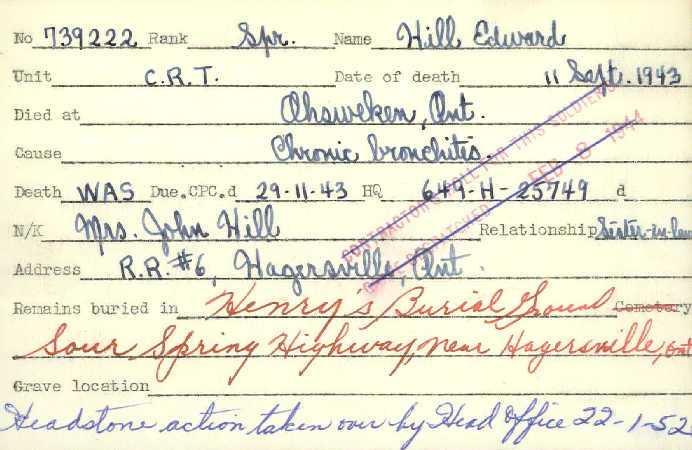 No 739222 Rank Spr. Name Hill Edward
Unit C.R.T. Date of death 11 Sept. 1943
Died at Ohsweken, Ont.
Cause Chronic bronchitis.
Death WAS Due.CPC.d 29-11-43 HQ 649-H-25749 d
N/K Mrs. John Hill Relationship Sister-in-law
Address R.R.#6, Hagersville, Ont.
Remains buried in Henry's Burial Ground Cemetery
Sour Spring Highway, near Hagersville, Ont
Grave location
Headstone action taken over by Head Office 22-1-52
FOR THIS SOLDIER
FEB 8 1944